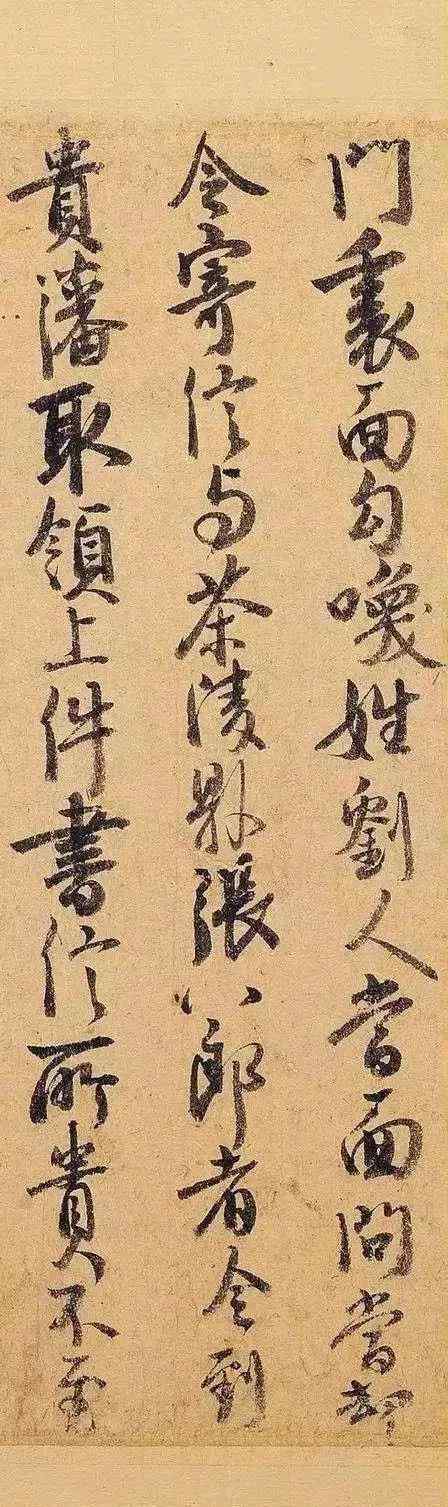 門裏面勾喚姓劉人當面問當却
令寄信与茶陵縣張八郎者令到
貴藩取領上件書信所貴不至